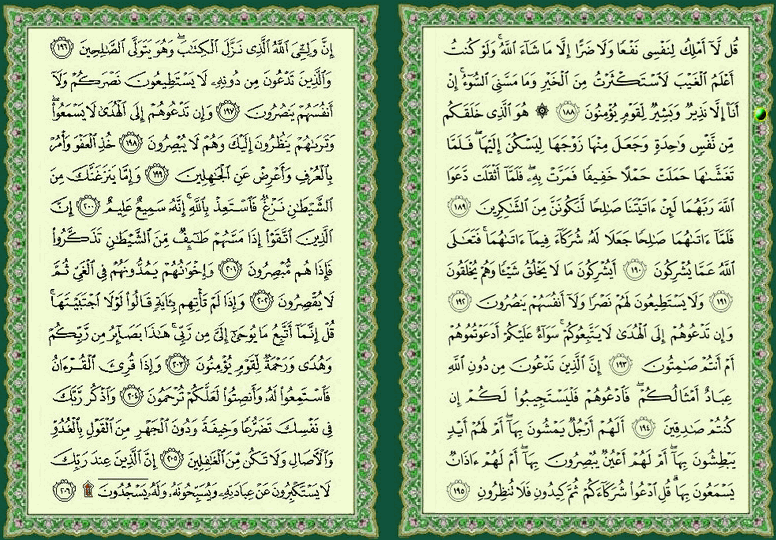 قُل لَّآ أَمْلِكُ لِنَفْسِى نَفْعًا وَلَا ضَرًّا إِلَّا مَا شَآءَ ٱللَّهُ ۚ وَلَوْ كُنتُ
أَعْلَمُ ٱلْغَيْبَ لَٱسْتَكْثَرْتُ مِنَ ٱلْخَيْرِ وَمَا مَسَّنِىَ ٱلسُّوٓءُ ۚ إِنْ
أَنَا۠ إِلَّا نَذِيرٌ وَبَشِيرٌ لِّقَوْمٍ يُؤْمِنُونَ ١٨٨ ۞ هُوَ ٱلَّذِى خَلَقَكُم
مِّن نَّفْسٍ وَٰحِدَةٍ وَجَعَلَ مِنْهَا زَوْجَهَا لِيَسْكُنَ إِلَيْهَا ۖ فَلَمَّا
تَغَشَّىٰهَا حَمَلَتْ حَمْلًا خَفِيفًا فَمَرَّتْ بِهِۦ ۖ فَلَمَّآ أَثْقَلَت دَّعَوَا
ٱللَّهَ رَبَّهُمَا لَئِنْ ءَاتَيْتَنَا صَٰلِحًا لَّنَكُونَنَّ مِنَ ٱلشَّٰكِرِينَ ١٨٩
فَلَمَّآ ءَاتَىٰهُمَا صَٰلِحًا جَعَلَا لَهُۥ شُرَكَآءَ فِيمَآ ءَاتَىٰهُمَا ۚ فَتَعَٰلَى
ٱللَّهُ عَمَّا يُشْرِكُونَ ١٩٠ أَيُشْرِكُونَ مَا لَا يَخْلُقُ شَيْـًٔا وَهُمْ يُخْلَقُونَ
١٩١ وَلَا يَسْتَطِيعُونَ لَهُمْ نَصْرًا وَلَآ أَنفُسَهُمْ يَنصُرُونَ ١٩٢
وَإِن تَدْعُوهُمْ إِلَى ٱلْهُدَىٰ لَا يَتَّبِعُوكُمْ ۚ سَوَآءٌ عَلَيْكُمْ أَدَعَوْتُمُوهُمْ
أَمْ أَنتُمْ صَٰمِتُونَ ١٩٣ إِنَّ ٱلَّذِينَ تَدْعُونَ مِن دُونِ ٱللَّهِ
عِبَادٌ أَمْثَالُكُمْ ۖ فَٱدْعُوهُمْ فَلْيَسْتَجِيبُوا۟ لَكُمْ إِن
كُنتُمْ صَٰدِقِينَ ١٩٤ أَلَهُمْ أَرْجُلٌ يَمْشُونَ بِهَآ ۖ أَمْ لَهُمْ أَيْدٍ
يَبْطِشُونَ بِهَآ ۖ أَمْ لَهُمْ أَعْيُنٌ يُبْصِرُونَ بِهَآ ۖ أَمْ لَهُمْ ءَاذَانٌ
يَسْمَعُونَ بِهَا ۗ قُلِ ٱدْعُوا۟ شُرَكَآءَكُمْ ثُمَّ كِيدُونِ فَلَا تُنظِرُونِ ١٩٥
إِنَّ وَلِـِّۧىَ ٱللَّهُ ٱلَّذِى نَزَّلَ ٱلْكِتَٰبَ ۖ وَهُوَ يَتَوَلَّى ٱلصَّٰلِحِينَ ١٩٦
وَٱلَّذِينَ تَدْعُونَ مِن دُونِهِۦ لَا يَسْتَطِيعُونَ نَصْرَكُمْ وَلَآ
أَنفُسَهُمْ يَنصُرُونَ ١٩٧ وَإِن تَدْعُوهُمْ إِلَى ٱلْهُدَىٰ لَا يَسْمَعُوا۟ ۖ
وَتَرَىٰهُمْ يَنظُرُونَ إِلَيْكَ وَهُمْ لَا يُبْصِرُونَ ١٩٨ خُذِ ٱلْعَفْوَ وَأْمُرْ
بِٱلْعُرْفِ وَأَعْرِضْ عَنِ ٱلْجَٰهِلِينَ ١٩٩ وَإِمَّا يَنزَغَنَّكَ مِنَ
ٱلشَّيْطَٰنِ نَزْغٌ فَٱسْتَعِذْ بِٱللَّهِ ۚ إِنَّهُۥ سَمِيعٌ عَلِيمٌ ٢٠٠ إِنَّ
ٱلَّذِينَ ٱتَّقَوْا۟ إِذَا مَسَّهُمْ طَٰٓئِفٌ مِّنَ ٱلشَّيْطَٰنِ تَذَكَّرُوا۟
فَإِذَا هُم مُّبْصِرُونَ ٢٠١ وَإِخْوَٰنُهُمْ يَمُدُّونَهُمْ فِى ٱلْغَىِّ ثُمَّ
لَا يُقْصِرُونَ ٢٠٢ وَإِذَا لَمْ تَأْتِهِم بِـَٔايَةٍ قَالُوا۟ لَوْلَا ٱجْتَبَيْتَهَا ۚ
قُلْ إِنَّمَآ أَتَّبِعُ مَا يُوحَىٰٓ إِلَىَّ مِن رَّبِّى ۚ هَٰذَا بَصَآئِرُ مِن رَّبِّكُمْ
وَهُدًى وَرَحْمَةٌ لِّقَوْمٍ يُؤْمِنُونَ ٢٠٣ وَإِذَا قُرِئَ ٱلْقُرْءَانُ
فَٱسْتَمِعُوا۟ لَهُۥ وَأَنصِتُوا۟ لَعَلَّكُمْ تُرْحَمُونَ ٢٠٤ وَٱذْكُر رَّبَّكَ
فِى نَفْسِكَ تَضَرُّعًا وَخِيفَةً وَدُونَ ٱلْجَهْرِ مِنَ ٱلْقَوْلِ بِٱلْغُدُوِّ
وَٱلْءَاصَالِ وَلَا تَكُن مِّنَ ٱلْغَٰفِلِينَ ٢٠٥ إِنَّ ٱلَّذِينَ عِندَ رَبِّكَ
لَا يَسْتَكْبِرُونَ عَنْ عِبَادَتِهِۦ وَيُسَبِّحُونَهُۥ وَلَهُۥ يَسْجُدُونَ ۩ ٢٠٦